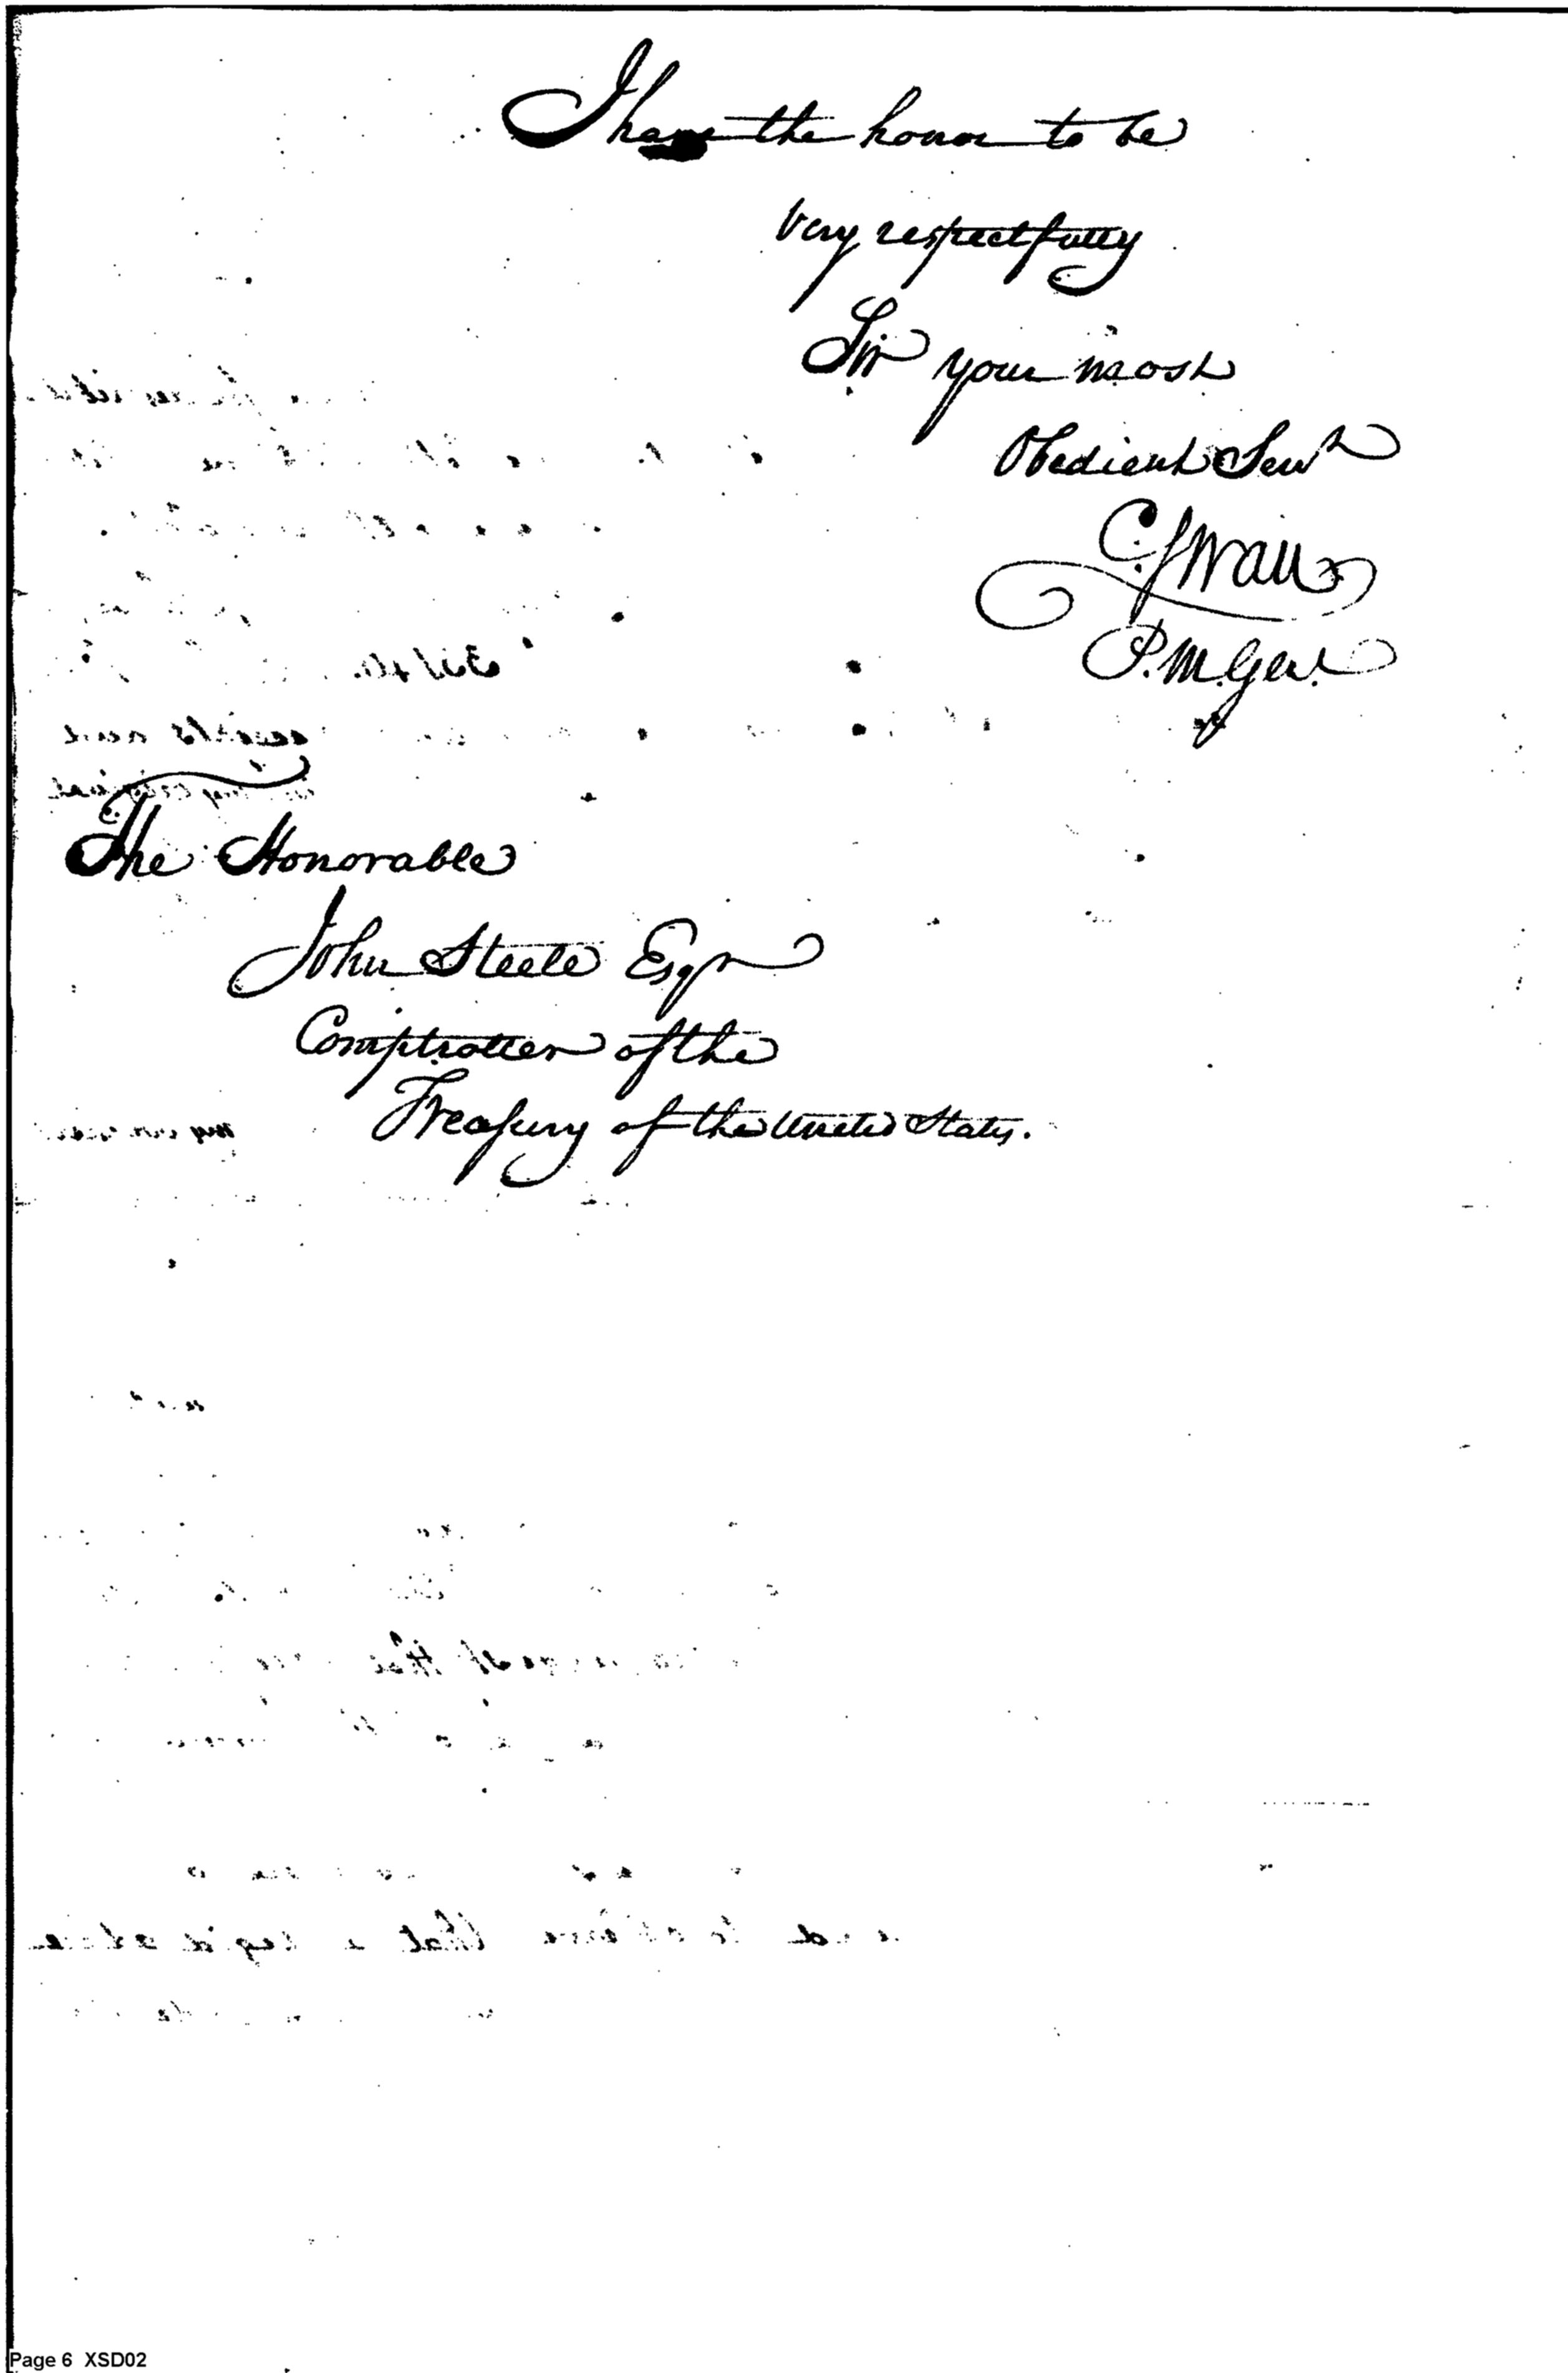 I have the honor to be
Very respectfully
Sir your most
Obedient Servt
C. Swan
P. M. Genl.
The Honorable
John Steele Esqr
Comptroller of the
Treasury of the United States.
Page 6 XSD02